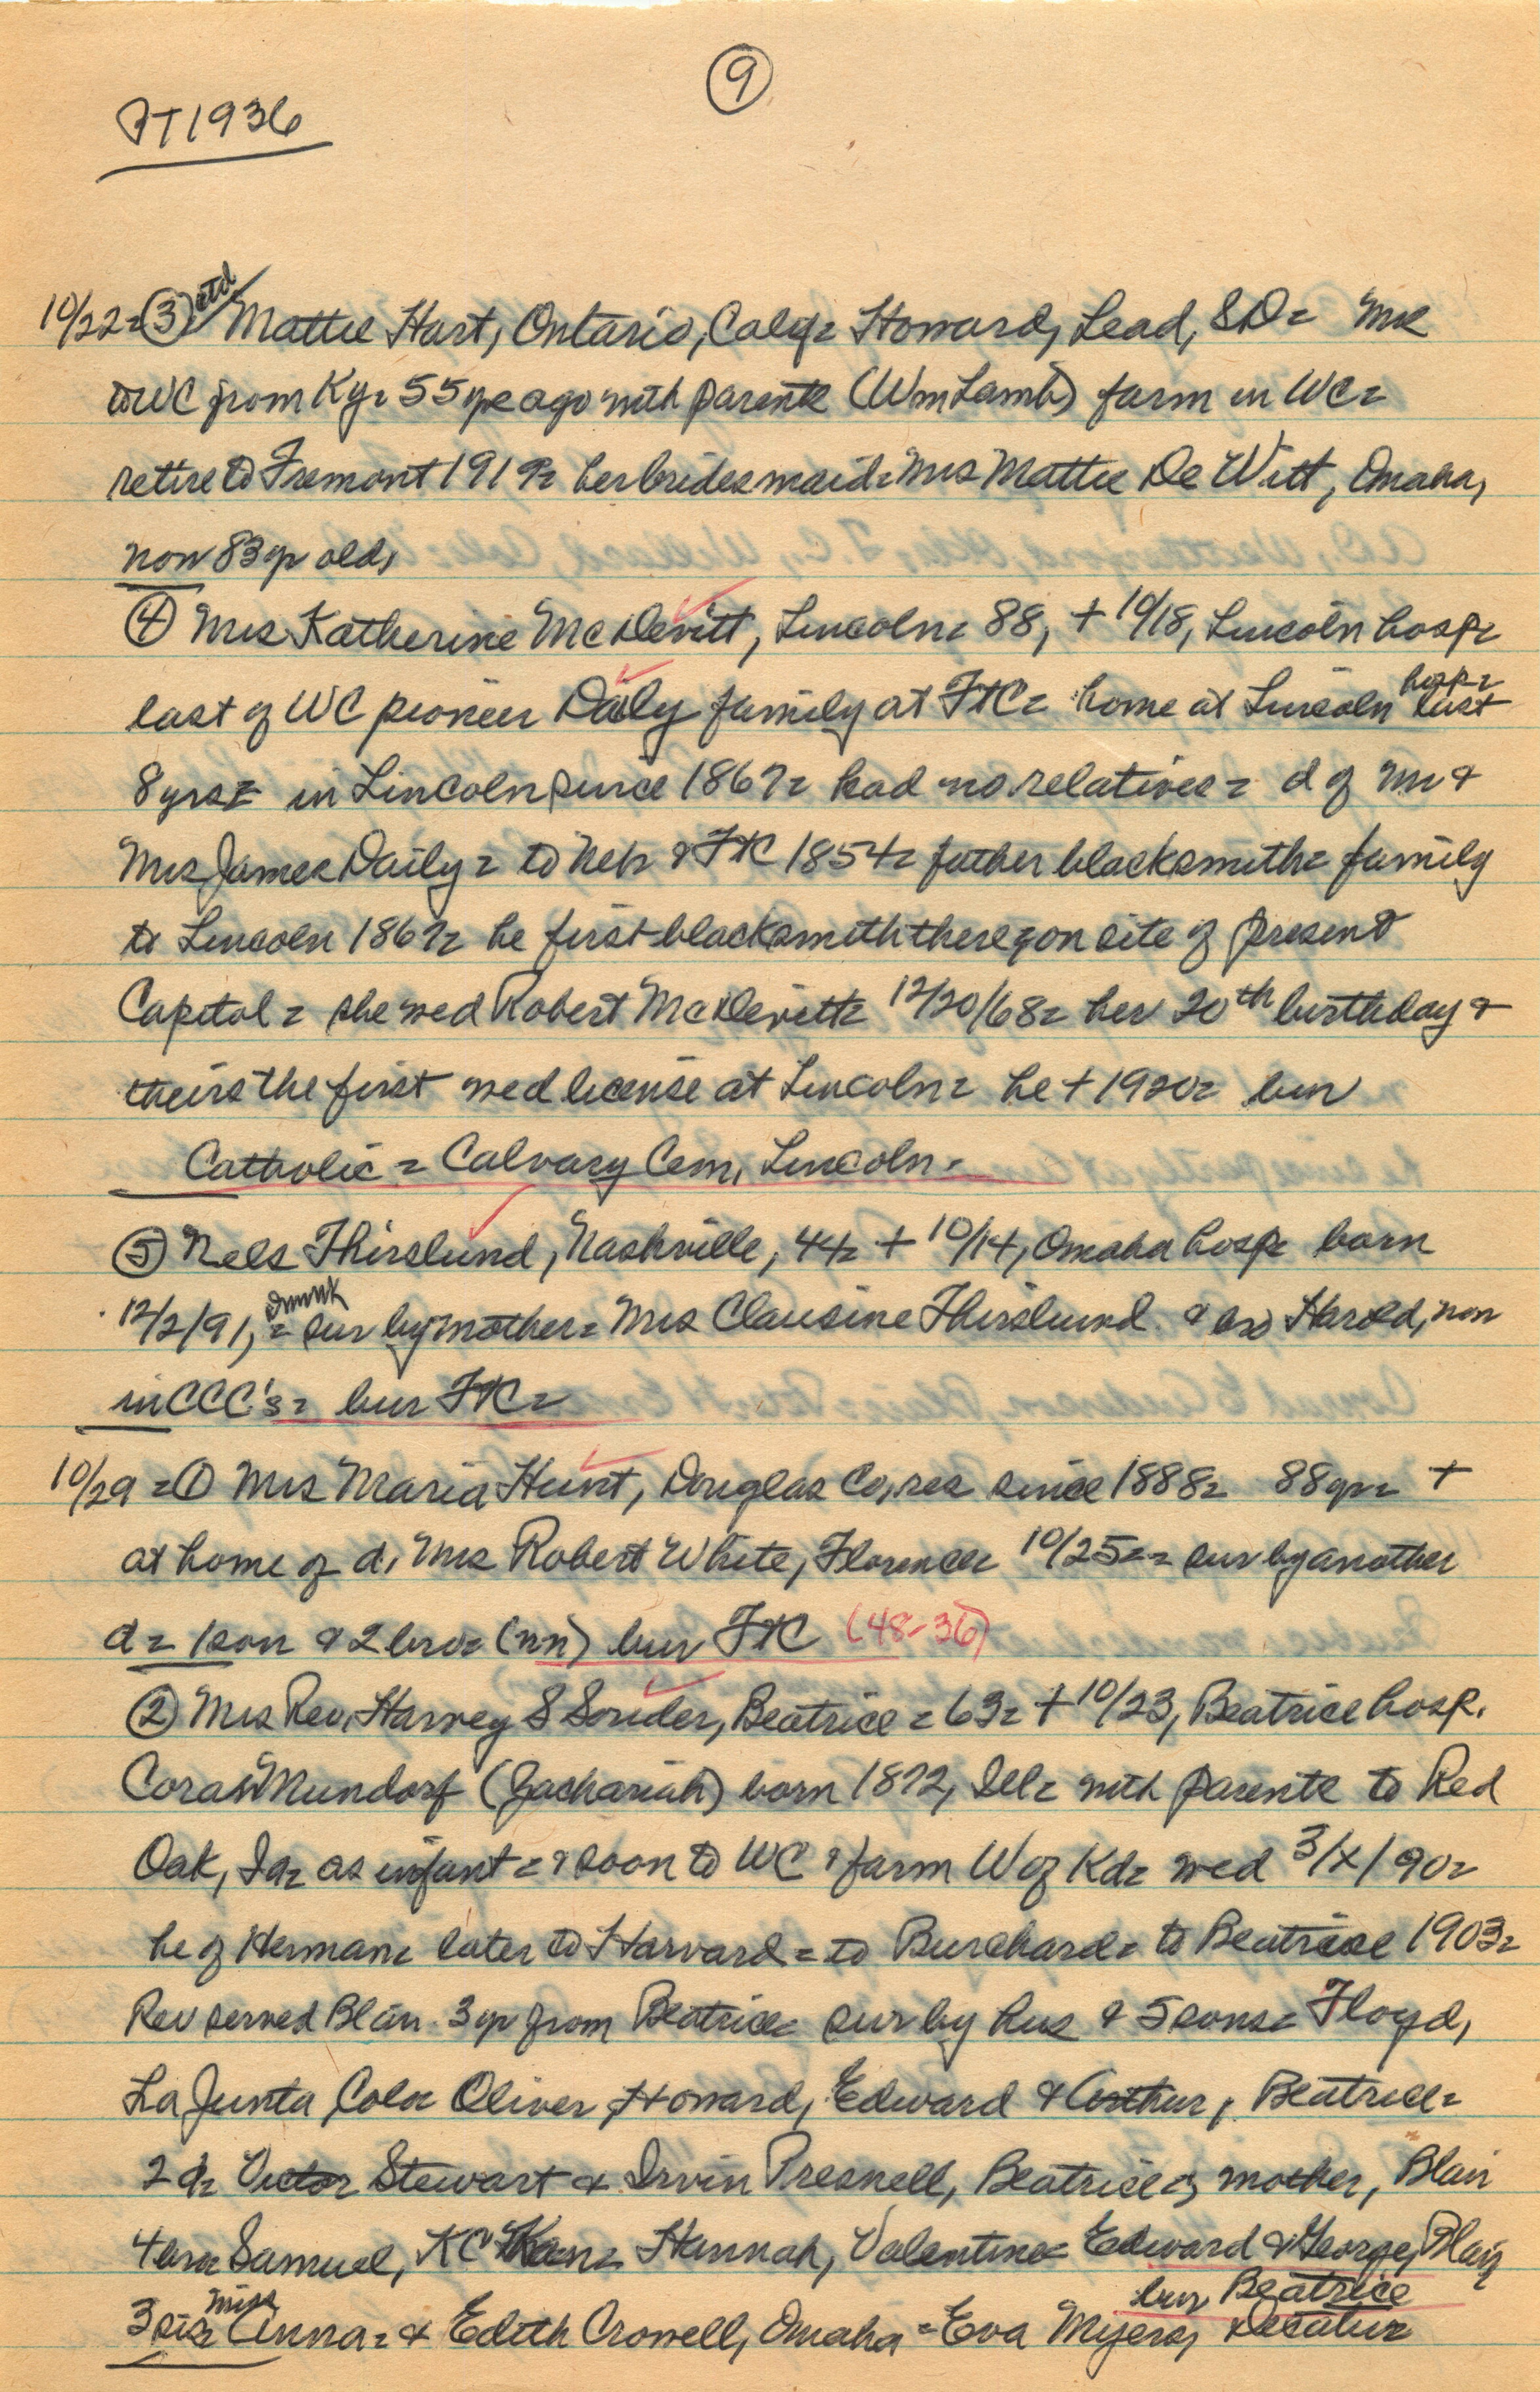 9
FT 1936
10/22 = 3 ctd Mattie Hart, Ontario, Calif = Howard, Lead, SD =
to WC from Ky = 55 yrs ago with parents (Wm Lamb) farm in WC =
retire to Fremont 1919 = her bridesmaid = Mrs Mattie De Witt, Omaha,
now 83 yr old,
4 Mrs Katherine McDevitt, Lincoln = 88, + 10/18, Lincoln hosp =
last of WC pioneer Daily family at FtC = home at Lincoln hosp = last
8 yrs = in Lincoln since 1867 = had no relatives = d of Mr &
Mrs James Daily = to Neb = & FtC 1854 = father blacksmith = family
to Lincoln 1867 = he first blacksmith there, on site of present
Capitol = she wed Robert McDevitt = 12/20/68 = her 20th birthday &
theirs the first wed license at Lincoln = he + 1920 = bur
Catholic = Calvary Cem, Lincoln.
5 Nels Thirslund, Nashville, 44 = + 10/14, Omaha hosp = born
12/2/91, = sur by mother = Mrs Clausine Thirslund & bro Harold, now
in CCC's = bur FtC =
10/29 = 1 Mrs Maria Hunt, Douglas Co, res since 1888 = 88 yr = +
at home of d, Mrs Robert White, Florence 10/25 = = sur by another
d = 1 son & 2 bro = (nn) bur FtC (48-36)
2 Mrs Rev. Harvey S Souder, Beatrice = 63 = + 10/23, Beatrice hosp.
Cora Mundorf (Zachariah) born 1872, Ill = with parents to Red
Oak, Ia = as infant = & soon to WC & farm W of Kd = wed 3/x/90 =
he of Herman = later to Harvard = to Burchard = to Beatrice 1903 =
Rev served Blair 3 yr from Beatrice = sur by hus & 5 sons = Floyd,
La Junta, Colo = Oliver, Howard, Edward & Arthur, Beatrice =
2 d = Victor Stewart & Irvin Presnell, Beatrice = mother, Blair
4 bro = Samuel, KC Kan = Hannah, Valentine = Edward & George, Blair
bur Beatrice
3 sis = Miss Anna = & Edith Crowell, Omaha = Eva Myers, Decatur